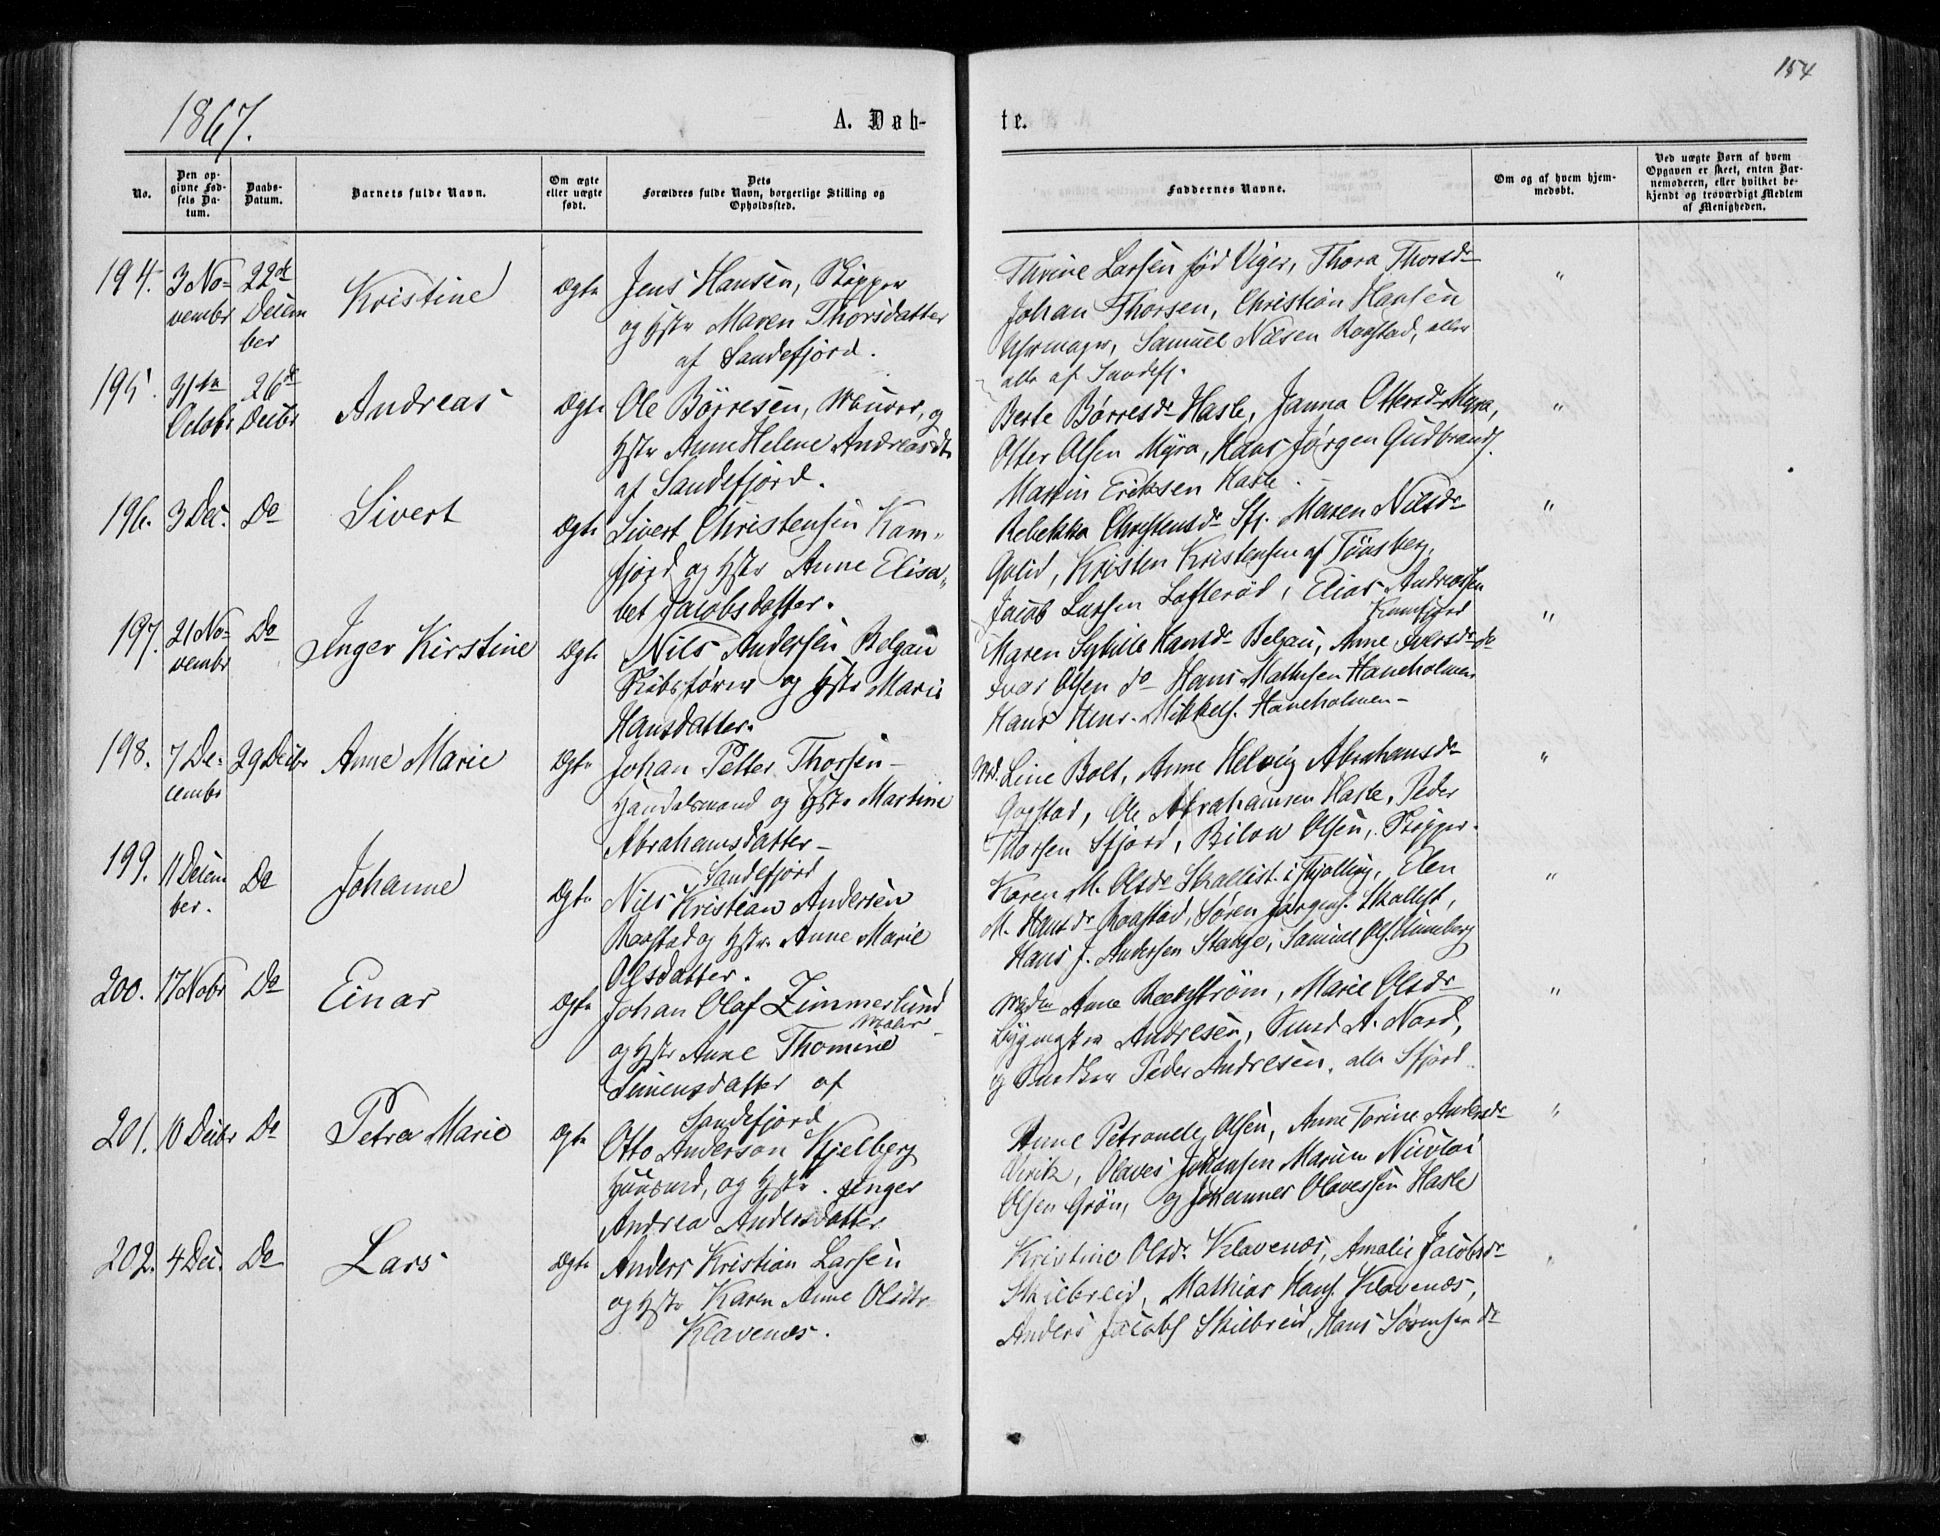 154
1867.
A. Døb-
te.
No.
Den op-
givne Fød-
sels Da-
tum.
Daabs-
Datum.
Barnets fulde Navn.
Om ægte
eller uægte
født.
Dets
Forældres fulde Navn, borgerlige Stilling og
Opholdssted.
Faddernes Navne.
Om og af hvem hjem-
medøbt.
Ved uægte Børn af hvem
Opgaven er skeet, enten Bar-
nemoderen, eller hvilket be-
kjendt og troværdigt Medlem
af Menigheden.
194.
3 No-
vembr
22de
Decem
ber
Kristine
Ægte
Jens Hansen, Skipper
og Hstr Maren Thorsdatter
af Sandefjord.
Thrine Larsen fød Viger, Thora Thorsdr
Johan Thorsen, Christian Hansen
Uhrmager, Samuel Nilsen Raastad, alle
alle af Sandefj.
"
195.
31te
Octobr
26de
Decbr
Andreas
Ægte
Ole Børresen, Muurer, og
Hstr Anne Helene Andreasdtr
af Sandefjord.
Berte Børresdr Hasle, Janna Ottersdr Myra,
Otter Olsen Myra, Hans Jørgen Gudbrands.
Martin Eriksen Hasle.
"
196.
3 Dec.
Do
Sivert
Ægte
Sivert Christensen Kam-
fjord og Hstr Anne Elisa-
bet Jacobsdatter.
Rebekka Christensdr Sfj. Maren Nilsdr
Kristen Kristensen af Tønsberg,
Jacob Larsen Lofterød, Elias Andreassen
Kamfjord
"
197.
21 No-
vembr
Do
Inger Kirstine
Ægte
Nils Andersen Belgau
Skibsfører og Hstr Marie
Hansdatter.
Maren Sybille Hansdr Belgau, Anne Iversdr do
Ivar Olsen do Hans Mathisen Haneholmen
Hans Henr. Mikkels. Haneholmen-
"
198.
7 De-
cembr
29 Decbr
Anne Marie
Ægte
Johan Petter Thorsen-
Handelsmand og Hstr Martine
Abrahamsdatter-
Sandefjord
Md. Line Bolt, Anne Helvig Abrahamsdr
Gogstad, Ole Abrahamsen Hasle, Peder
Thorsen Sfjord, Bilow Olsen, Skipper.
"
199.
11 Decem
ber.
Do
Johanne
Ægte
Nils Kristian Andersen
Raastad og Hstr Anne Marie
Olsdatter.
Karen M. Olsdr Skallist. i Tjølling, Elen
M. Hansdr Raastad, Søren Jørgens. Skallist,
Hans J. Andersen Stange, Samuel Ols.
"
200.
17 Nobr
Do
Einar
Ægte
Johan Olaf Zimmerlund
Maler
og Hstr Anne Thomine
Simensdatter af
Sandefjord
Mdm Anne Marie Olsdr
Bygmstr Andresen, Smed A. Nord,
og Snedker Peder Andresen, alle Sfjord
"
201.
10 Decbr
Do
Petra Marie
Ægte
Otto Anderson Kjelberg
Huusmd, og Hstr. Inger
Andrea Andersdatter
Anne Petronelle Olsen, Anne Torine Andersdr
Virik, Olaves Johansen Marum Nicolai
Olsen Grøn, og Johannes Olavessen Hasle
"
202.
4 Dec.
Do
Lars
Ægte
Anders Kristian Larsen
og Hstr Karen Anne Olsdtr
Klavenæs.
Kristine Olsdr. Klavenæs, Amalie Jacobsdr
Skiebreid, Mathias Hans. Klavenæs,
Anders Jacobs. Skiebreid, Hans Sørensen do
"